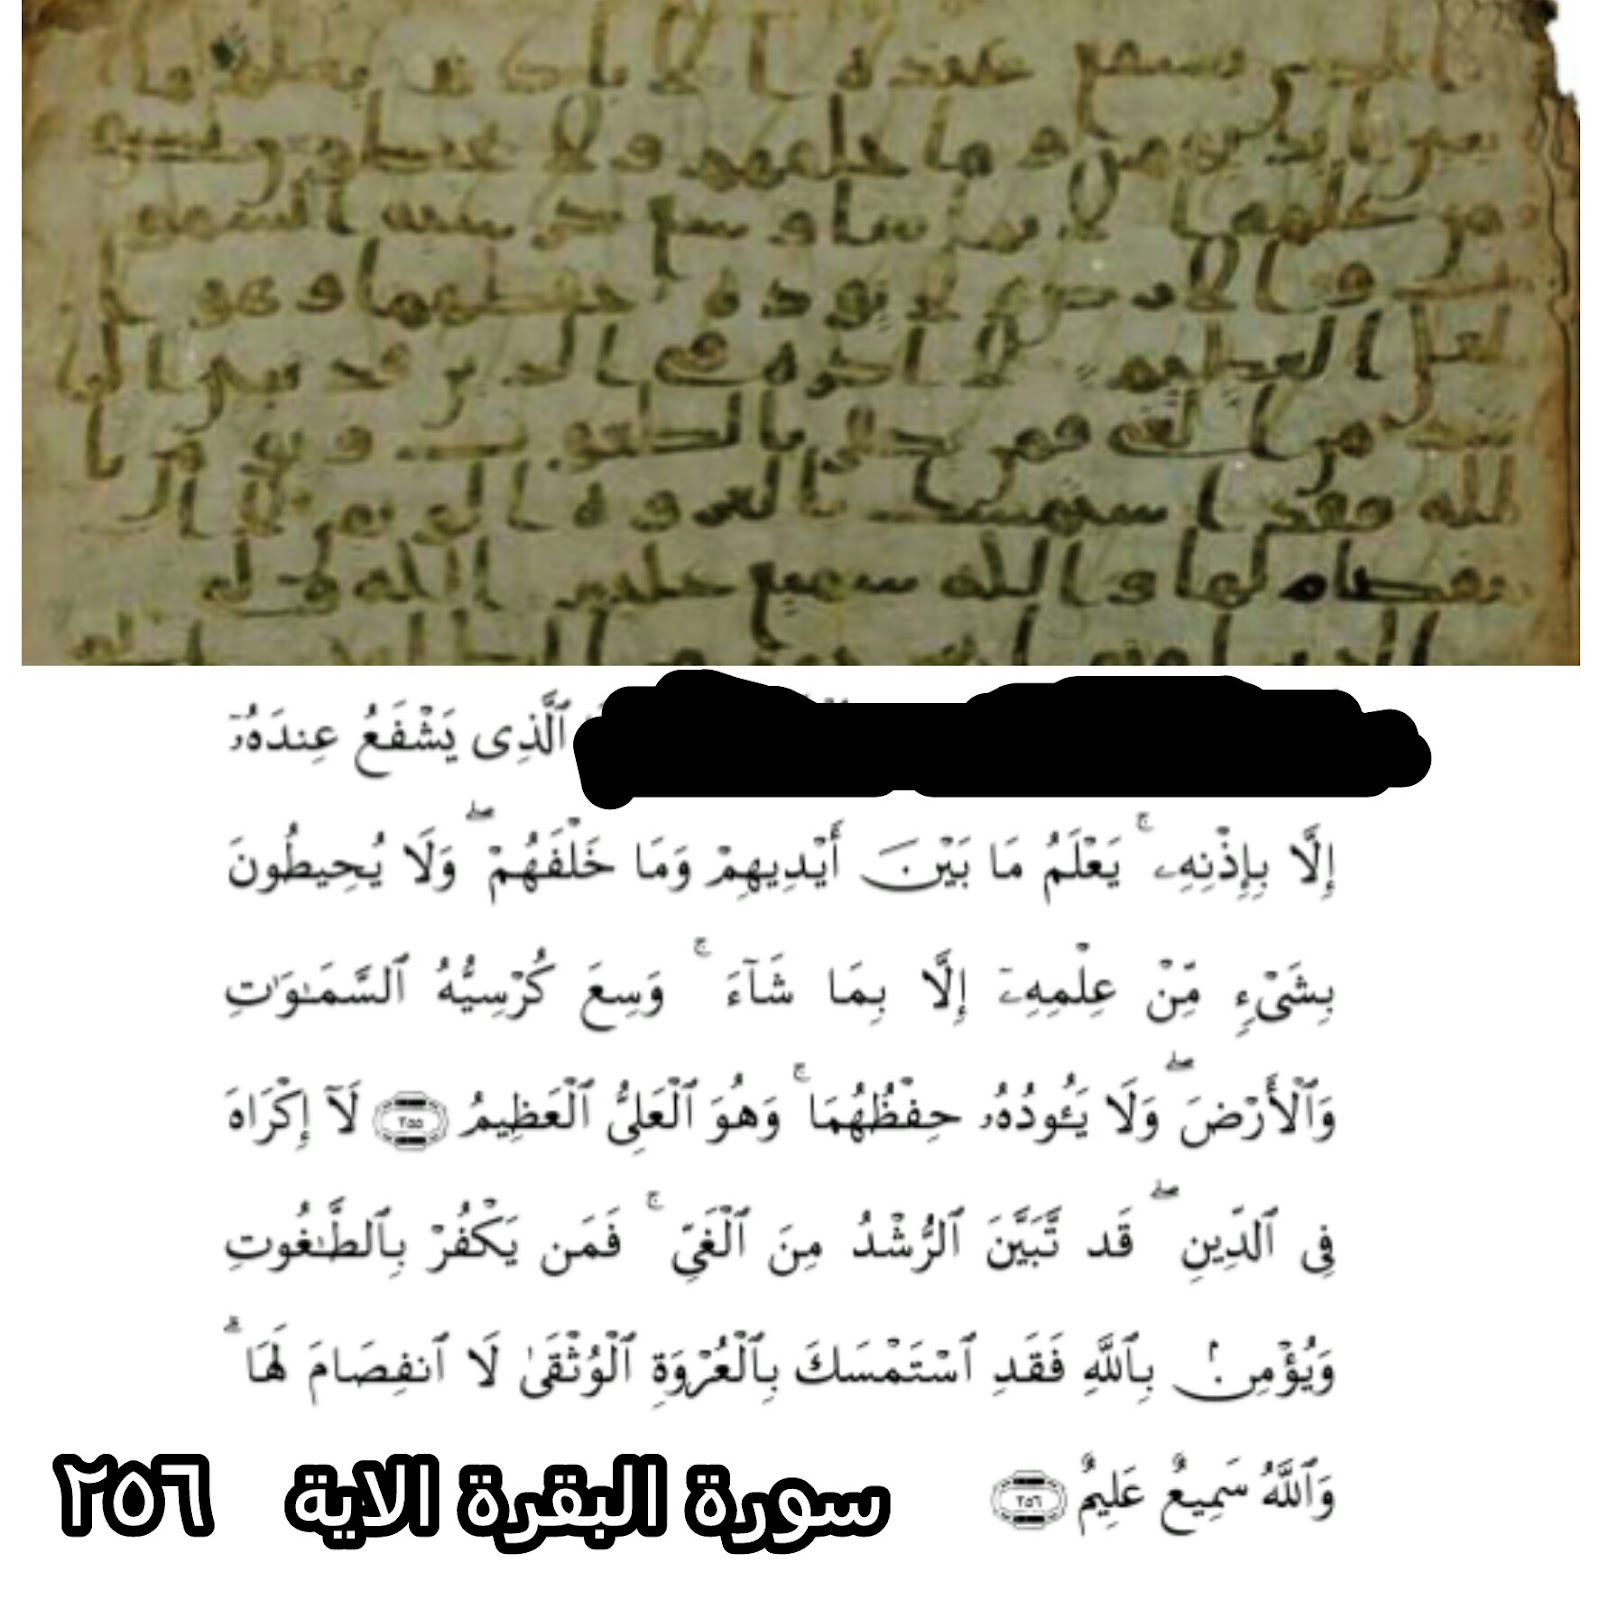 الذى يشفع عنده الا باذنه يعلم ما
بين ايديهم وما خلفهم ولا يحيطون بشى
من علمه الا بما شا وسع كرسيه السمو
ت والارض ولا يوده حفظهما وهو ا
لعلى العظيم لا اكره فى الدين قد تبين الر
شد من الغى فمن يكفر بالطغوت ويومن با
لله فقد استمسك بالعروه الوثقى لا ا
نفصام لها والله سميع عليم الله ولى
ٱلَّذِى يَشْفَعُ عِندَهُۥٓ
إِلَّا بِإِذْنِهِۦ ۚ يَعْلَمُ مَا بَيْنَ أَيْدِيهِمْ وَمَا خَلْفَهُمْ ۖ وَلَا يُحِيطُونَ
بِشَىْءٍ مِّنْ عِلْمِهِۦٓ إِلَّا بِمَا شَآءَ ۚ وَسِعَ كُرْسِيُّهُ ٱلسَّمَـٰوَٰتِ
وَٱلْأَرْضَ ۖ وَلَا يَـُٔودُهُۥ حِفْظُهُمَا ۚ وَهُوَ ٱلْعَلِىُّ ٱلْعَظِيمُ ٢٥٥ لَآ إِكْرَاهَ
فِى ٱلدِّينِ ۖ قَد تَّبَيَّنَ ٱلرُّشْدُ مِنَ ٱلْغَىِّ ۚ فَمَن يَكْفُرْ بِٱلطَّـٰغُوتِ
وَيُؤْمِنۢ بِٱللَّهِ فَقَدِ ٱسْتَمْسَكَ بِٱلْعُرْوَةِ ٱلْوُثْقَىٰ لَا ٱنفِصَامَ لَهَا ۗ
وَٱللَّهُ سَمِيعٌ عَلِيمٌ ٢٥٦
سورة البقرة الاية ٢٥٦